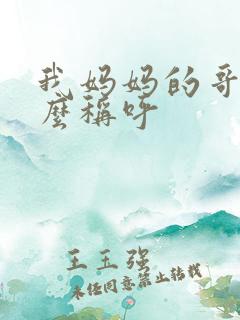 我妈妈的哥
麽稱呼
王玉强
未经同意禁止转载